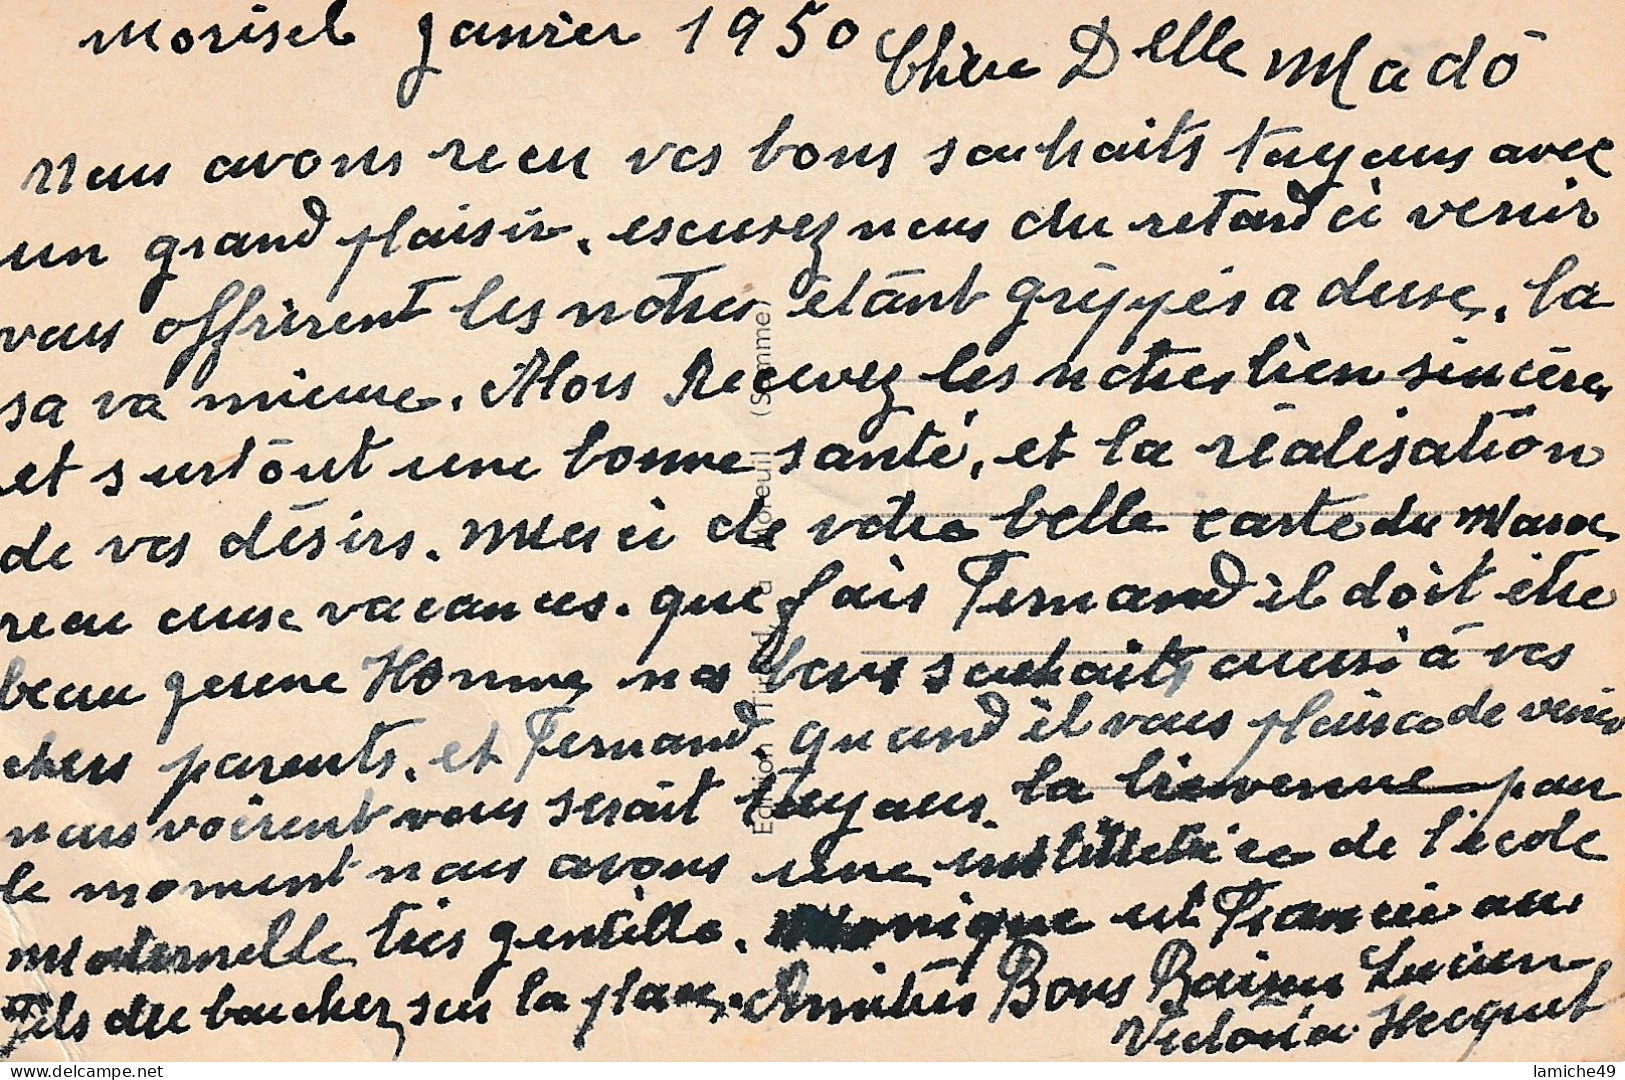 Morisel Janvier 1950 Chère Delle Mado
Nous avons recu vos bons souhaits toujous avec
un grand plaisir, escusez nous du retard à venir
vous offrirent les notres étant grippés a deuse, la
sa va mieuse. Alors Recevez les notres bien sincères
et surtout une bonne santé, et la réalisation
de vos désirs. Merci de votre belle carte du Maroc
recu cuse vacances. que fais Fernand il doit être
beau jeune Homme nos bons souhaits aussi à vos
chers parents. et Fernand. quand il vous plaisa de venir
nous voirent vous serait toujous la bienvenue par
le moment nous avons une institutrice de l'école
maternelle très gentille. Monique est Fiancée au
Fils du boucher sur la place. Amitiés Bons Baisers Lucien
Victoria Hecquet
Edition Moreuil (Somme)
delcampe.net
lamiche49